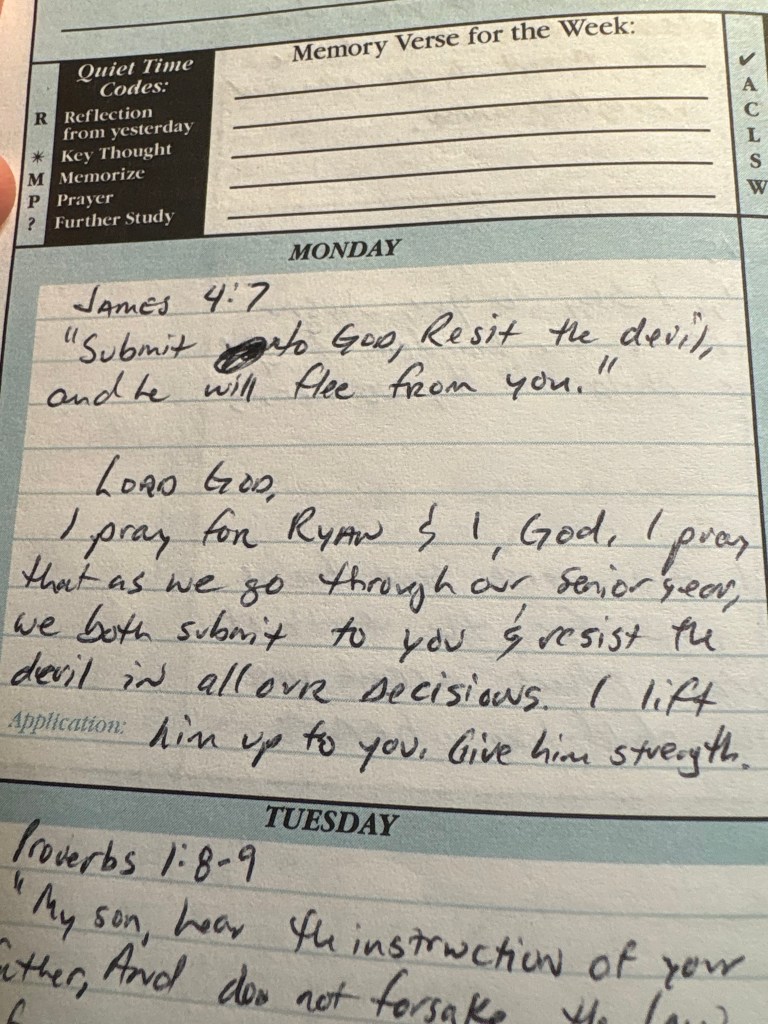 Memory Verse for the Week:
Quiet Time
Codes:
R Reflection
from yesterday
✳ Key Thought
M Memorize
P Prayer
? Further Study
✓
A
C
L
S
W
MONDAY
James 4:7
"Submit to God, Resit the devil,
and he will flee from you."
Lord God,
I pray for Ryan & I, God, I pray
that as we go through our senior year,
we both submit to you & resist the
devil in all our decisions. I lift
Application: him up to you. Give him strength.
TUESDAY
Proverbs 1:8-9
"My son, hear the instruction of your
father, And doo not forsake the law